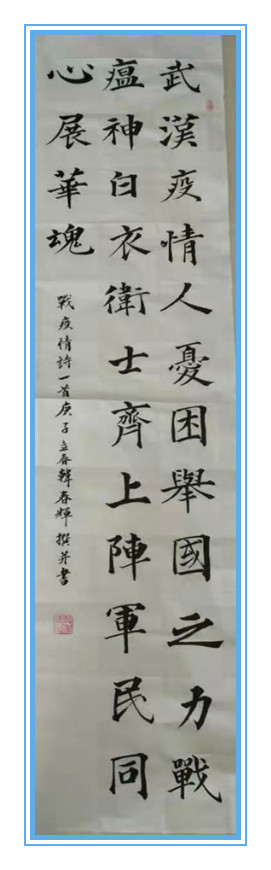 武漢疫情人憂困舉國之力戰
瘟神白衣衛士齊上陣軍民同
心展華魂
戰疫情詩一首庚子立春韓春輝撰并書